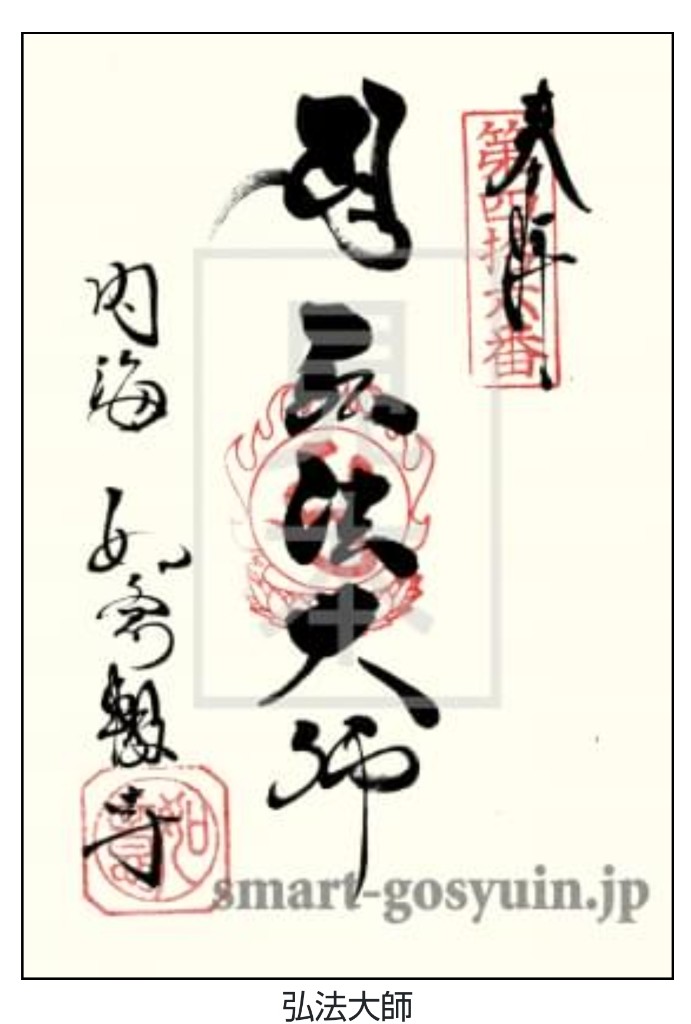 奉拝
第四拾六番
弘法大師
内海 如意輪寺
見本
smart-gosyuin.jp
弘法大師